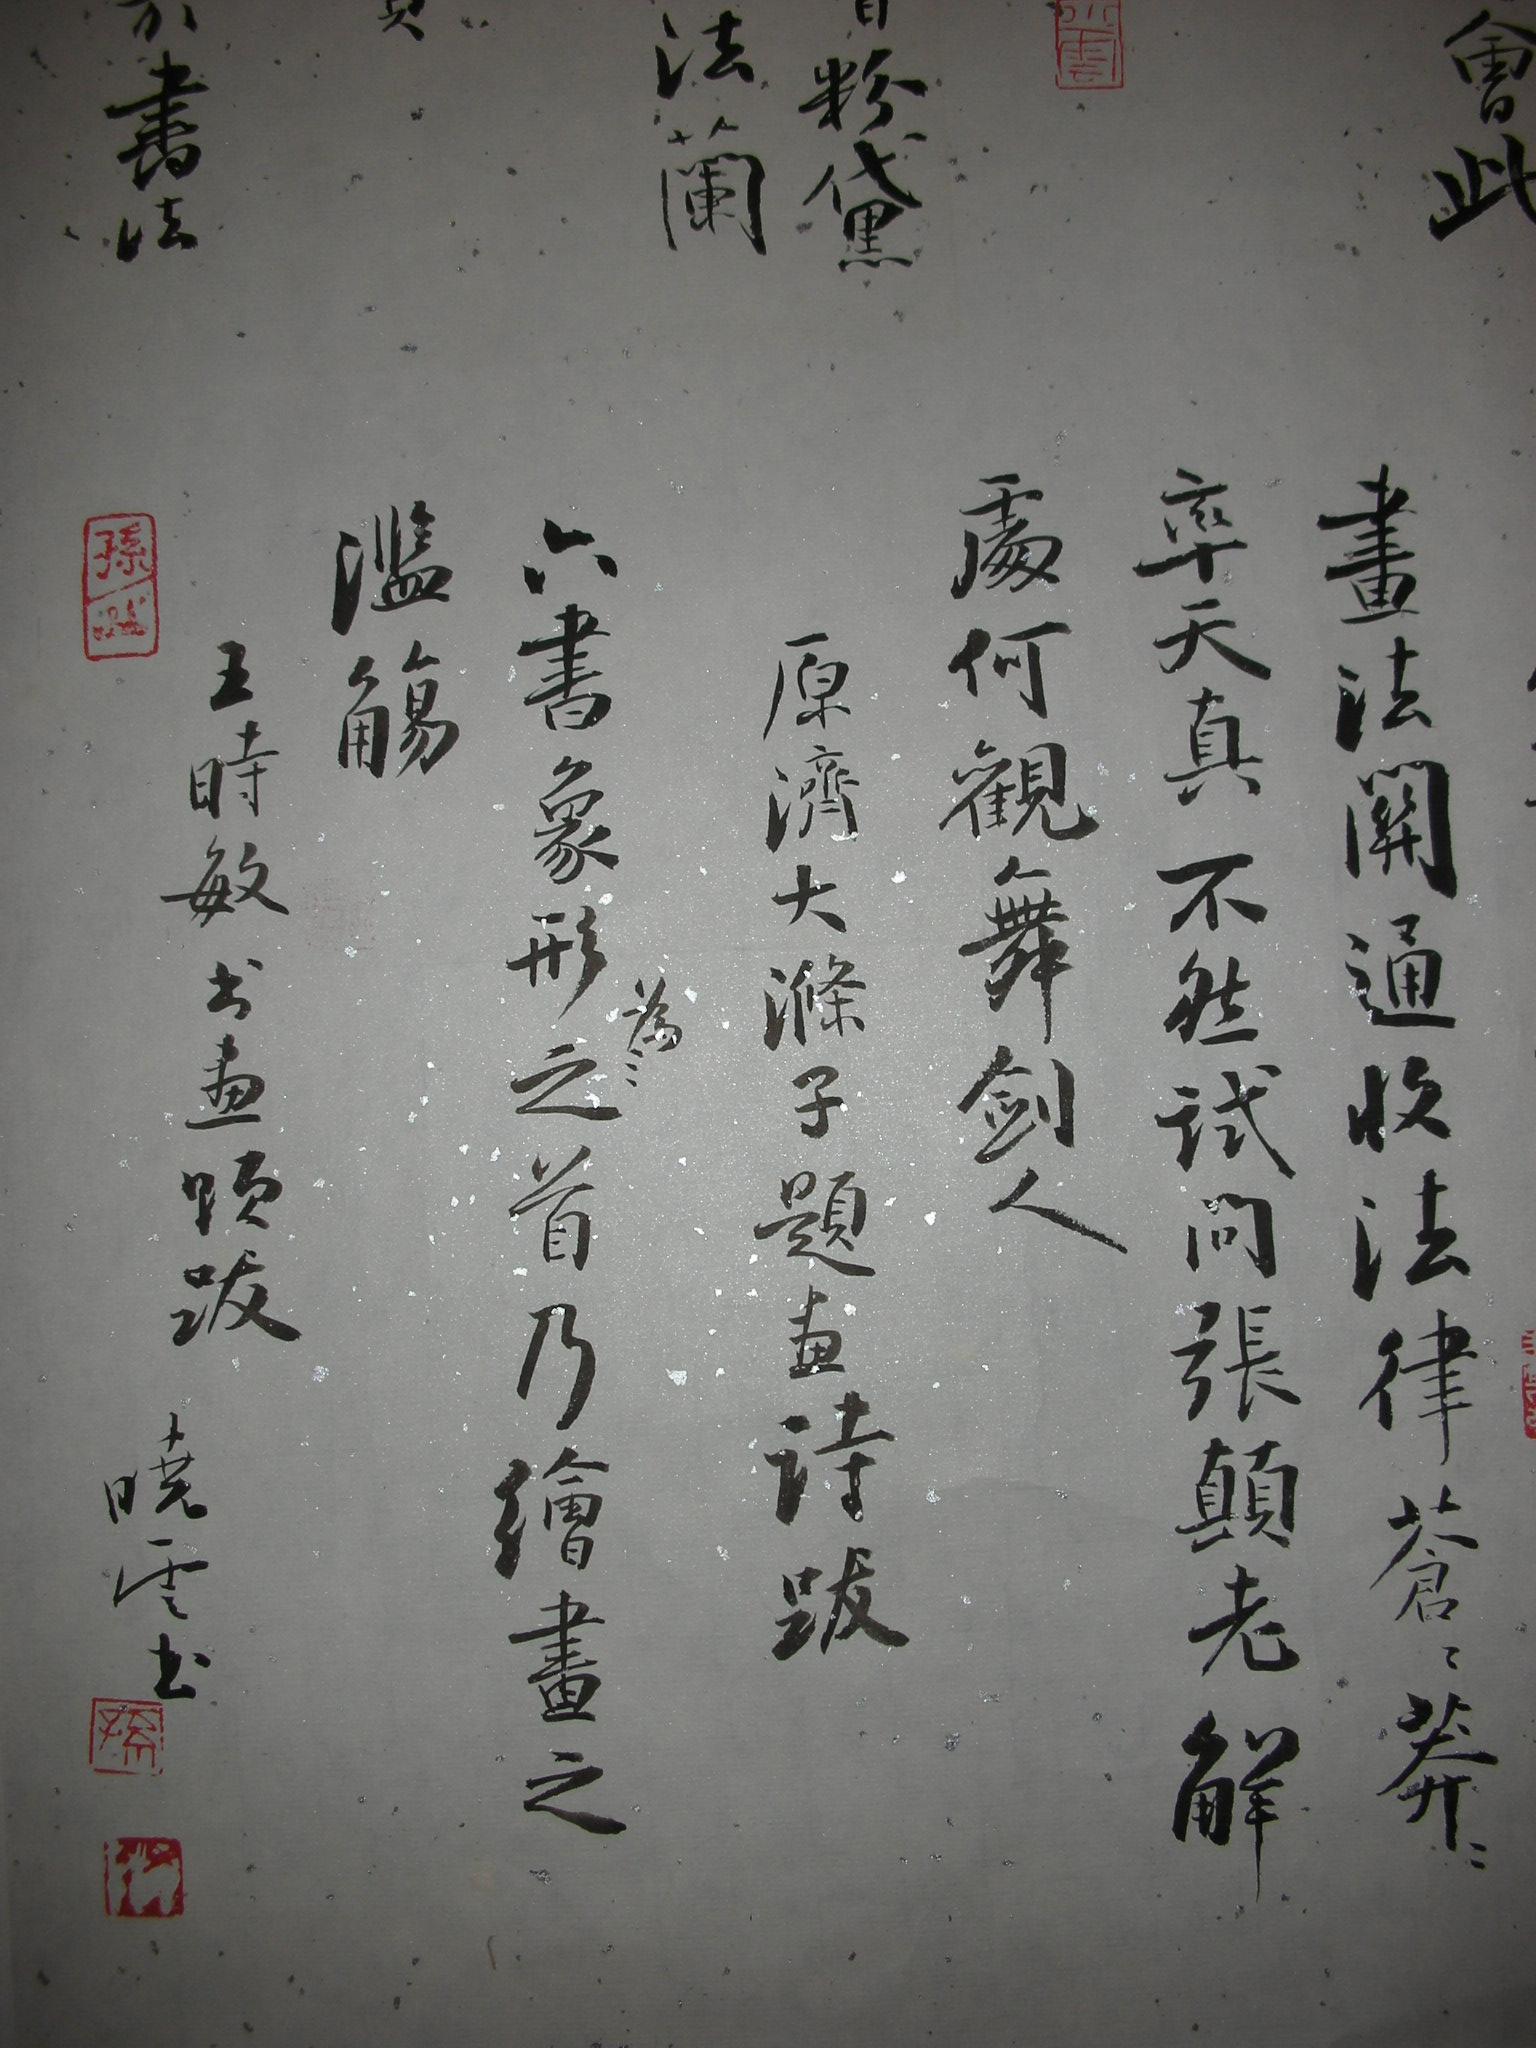 會此
粉黛
法蘭
書法
畫法關通收法律蒼〻莽〻
率天真不然試問張顛老解
處何觀舞劍人
原濟大滌子題畫詩跋
六書象形之首乃繪畫之
為〻
濫觴
王時敏书畫題跋
曉雲书
孫